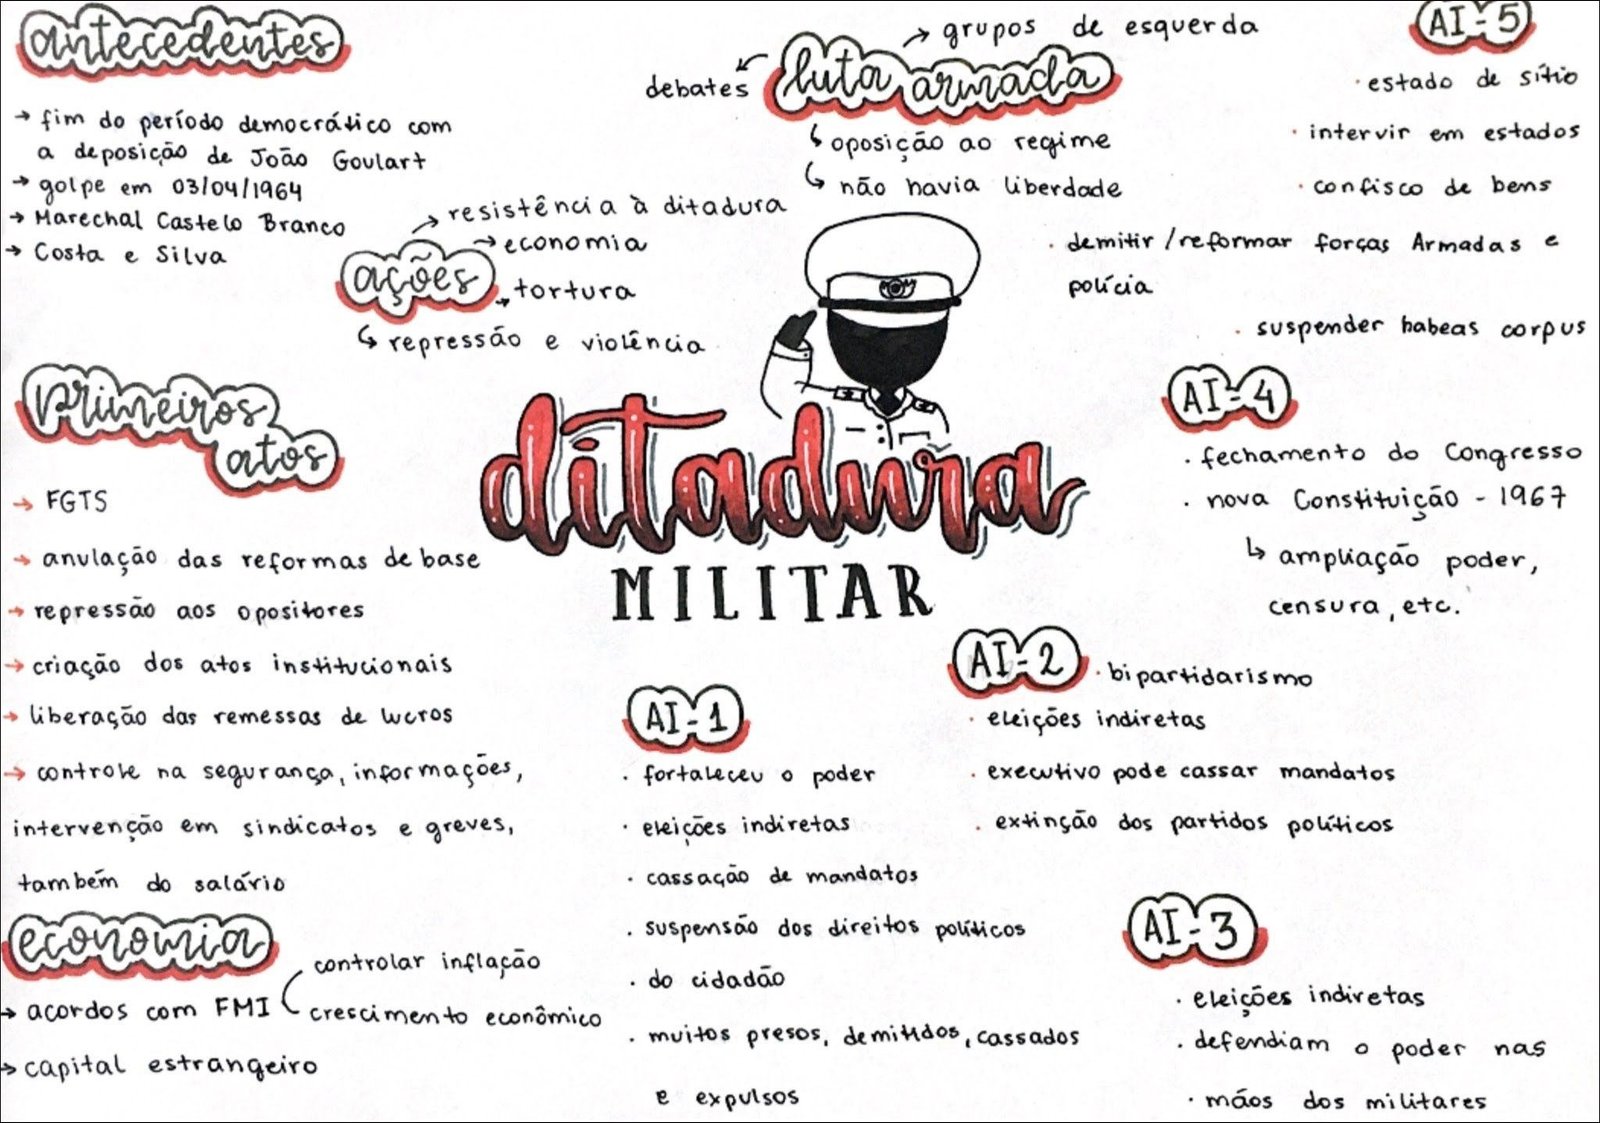 antecedentes
→ fim do período democrático com
a deposição de João Goulart
→ golpe em 03/04/1964
→ Marechal Castelo Branco
→ Costa e Silva
ações
→ resistência à ditadura
→ economia
→ tortura
↳ repressão e violência
luta armada
→ grupos de esquerda
debates
↳ oposição ao regime
↳ não havia liberdade
AI-5
· estado de sítio
· intervir em estados
· confisco de bens
· demitir/reformar forças Armadas e
polícia
· suspender habeas corpus
primeiros
atos
→ FGTS
→ anulação das reformas de base
→ repressão aos opositores
→ criação dos atos institucionais
→ liberação das remessas de lucros
→ controle na segurança, informações,
intervenção em sindicatos e greves,
também do salário
ditadura
MILITAR
AI-4
· fechamento do Congresso
· nova Constituição - 1967
↳ ampliação poder,
censura, etc.
AI-2
· bipartidarismo
· eleições indiretas
· executivo pode cassar mandatos
· extinção dos partidos políticos
AI-1
· fortaleceu o poder
· eleições indiretas
· cassação de mandatos
· suspensão dos direitos políticos
· do cidadão
· muitos presos, demitidos, cassados
e expulsos
AI-3
· eleições indiretas
· defendiam o poder nas
· mãos dos militares
economia
→ acordos com FMI
controlar inflação
crescimento econômico
→ capital estrangeiro